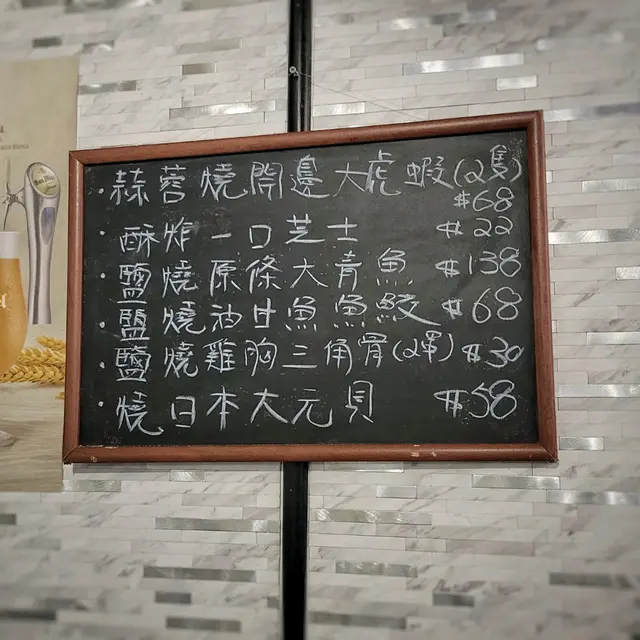 蒜蓉燒開邊大虎蝦(2隻) $68
酥炸一口芝士 $22
鹽燒原條大青魚 $138
鹽燒油甘魚魚鮫 $68
鹽燒雞胸三角骨(2串) $30
燒日本大元貝 $58